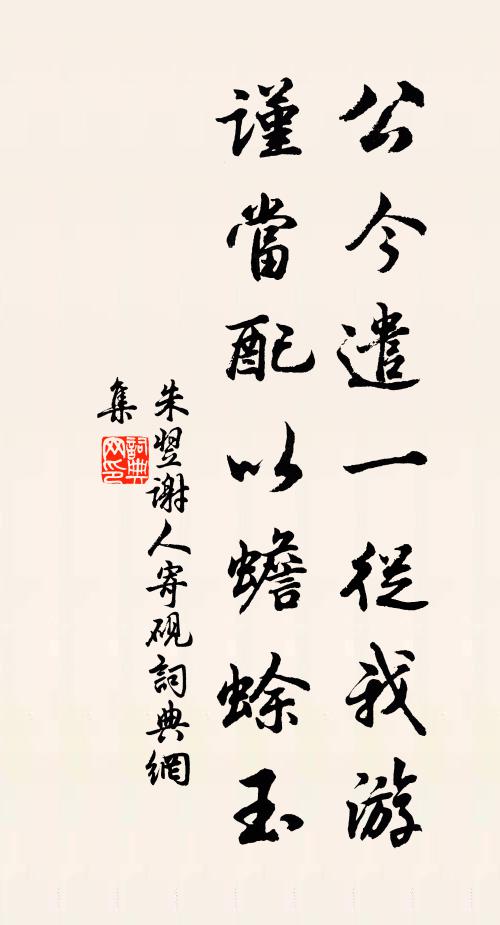 公今遣一從我游
謹當配以蟾蜍玉
朱翌謝人寄硯詞典網
集
詞典网印